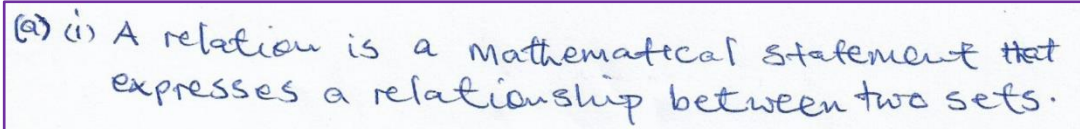 (a) (i) A relation is a mathematical statement that
expresses a relationship between two sets.